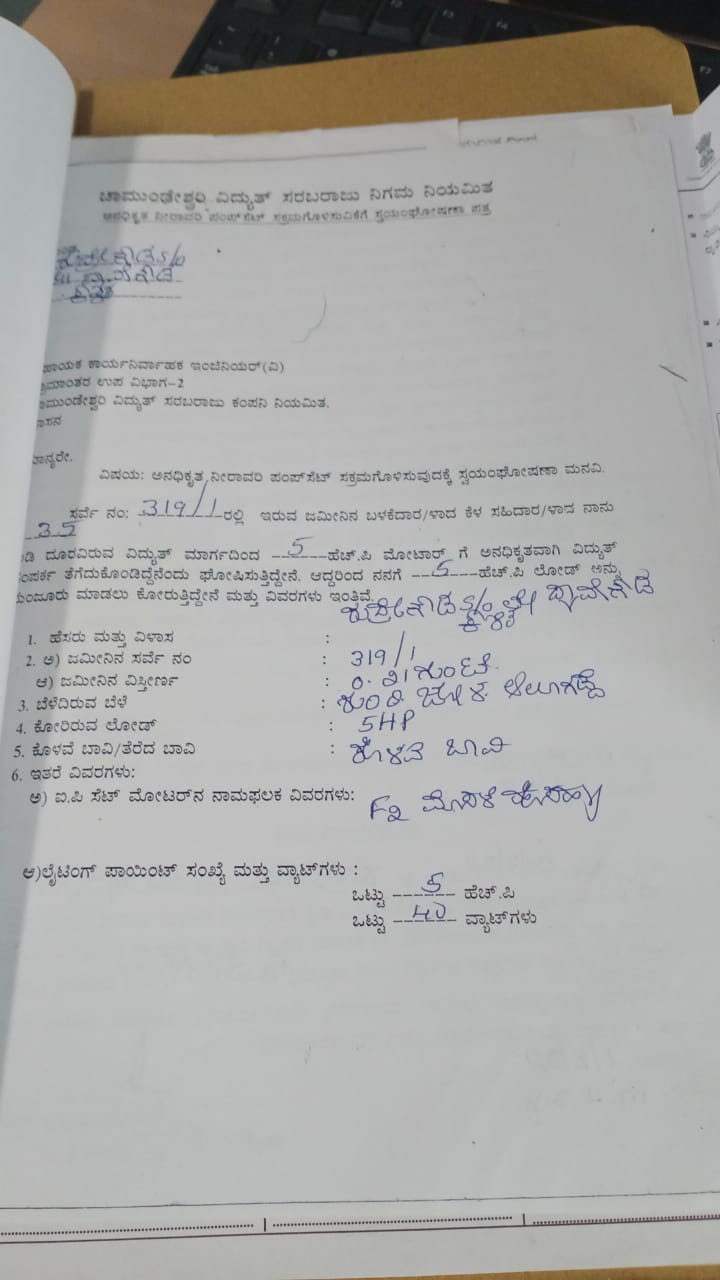 ಚಾಮುಂಡೇಶ್ವರಿ ವಿದ್ಯುತ್ ಸರಬರಾಜು ನಿಗಮ ನಿಯಮಿತ
ಅನಧಿಕೃತ ನೀರಾವರಿ ಪಂಪ್‌ಸೆಟ್ ಸಕ್ರಮಗೊಳಿಸುವಿಕೆಗೆ ಸ್ವಯಂಘೋಷಣಾ ಪತ್ರ
ಹಾಯಕ ಕಾರ್ಯನಿರ್ವಾಹಕ ಇಂಜಿನಿಯರ್(ವಿ)
ಗ್ರಾಮಾಂತರ ಉಪ ವಿಭಾಗ-2
ಚಾಮುಂಡೇಶ್ವರಿ ವಿದ್ಯುತ್ ಸರಬರಾಜು ಕಂಪನಿ ನಿಯಮಿತ.
ಾಸನ
ಮಾನ್ಯರೇ.
ವಿಷಯ: ಅನಧಿಕೃತ ನೀರಾವರಿ ಪಂಪ್‌ಸೆಟ್ ಸಕ್ರಮಗೊಳಿಸುವುದಕ್ಕೆ ಸ್ವಯಂಘೋಷಣಾ ಮನವಿ.
ಸರ್ವೆ ನಂ: 319/1 ರಲ್ಲಿ ಇರುವ ಜಮೀನಿನ ಬಳಕೆದಾರ/ಳಾದ ಕೆಳ ಸಹಿದಾರ/ಳಾದ ನಾನು
35
ಡಿ ದೂರವಿರುವ ವಿದ್ಯುತ್ ಮಾರ್ಗದಿಂದ 5 ಹೆಚ್.ಪಿ ಮೋಟಾರ್ ಗೆ ಅನಧಿಕೃತವಾಗಿ ವಿದ್ಯುತ್
ಸಂಪರ್ಕ ತೆಗೆದುಕೊಂಡಿದ್ದೆನೆಂದು ಘೋಷಿಸುತ್ತಿದ್ದೇನೆ. ಆದ್ದರಿಂದ ನನಗೆ 5 ಹೆಚ್.ಪಿ ಲೋಡ್ ಅನ್ನು
ಮಂಜೂರು ಮಾಡಲು ಕೋರುತ್ತಿದ್ದೇನೆ ಮತ್ತು ವಿವರಗಳು ಇಂತಿವೆ.
1. ಹೆಸರು ಮತ್ತು ವಿಳಾಸ :
2. ಅ) ಜಮೀನಿನ ಸರ್ವೆ ನಂ : 319/1
ಆ) ಜಮೀನಿನ ವಿಸ್ತೀರ್ಣ : ಗುಂಟೆ
3. ಬೆಳೆದಿರುವ ಬೆಳೆ : ಶುಂಠಿ ಜೋಳ ಆಲುಗಡ್ಡೆ
4. ಕೋರಿರುವ ಲೋಡ್ : 5HP
5. ಕೊಳವೆ ಬಾವಿ/ತೆರೆದ ಬಾವಿ : ಕೊಳವೆ ಬಾವಿ
6. ಇತರೆ ವಿವರಗಳು:
ಅ) ಐ.ಪಿ ಸೆಟ್ ಮೋಟರ್‌ನ ನಾಮಫಲಕ ವಿವರಗಳು: ಮೊಸಳೆ
ಆ)ಲೈಟಿಂಗ್ ಪಾಯಿಂಟ್ ಸಂಖ್ಯೆ ಮತ್ತು ವ್ಯಾಟ್‌ಗಳು :
ಒಟ್ಟು 5 ಹೆಚ್.ಪಿ
ಒಟ್ಟು 40 ವ್ಯಾಟ್‌ಗಳು